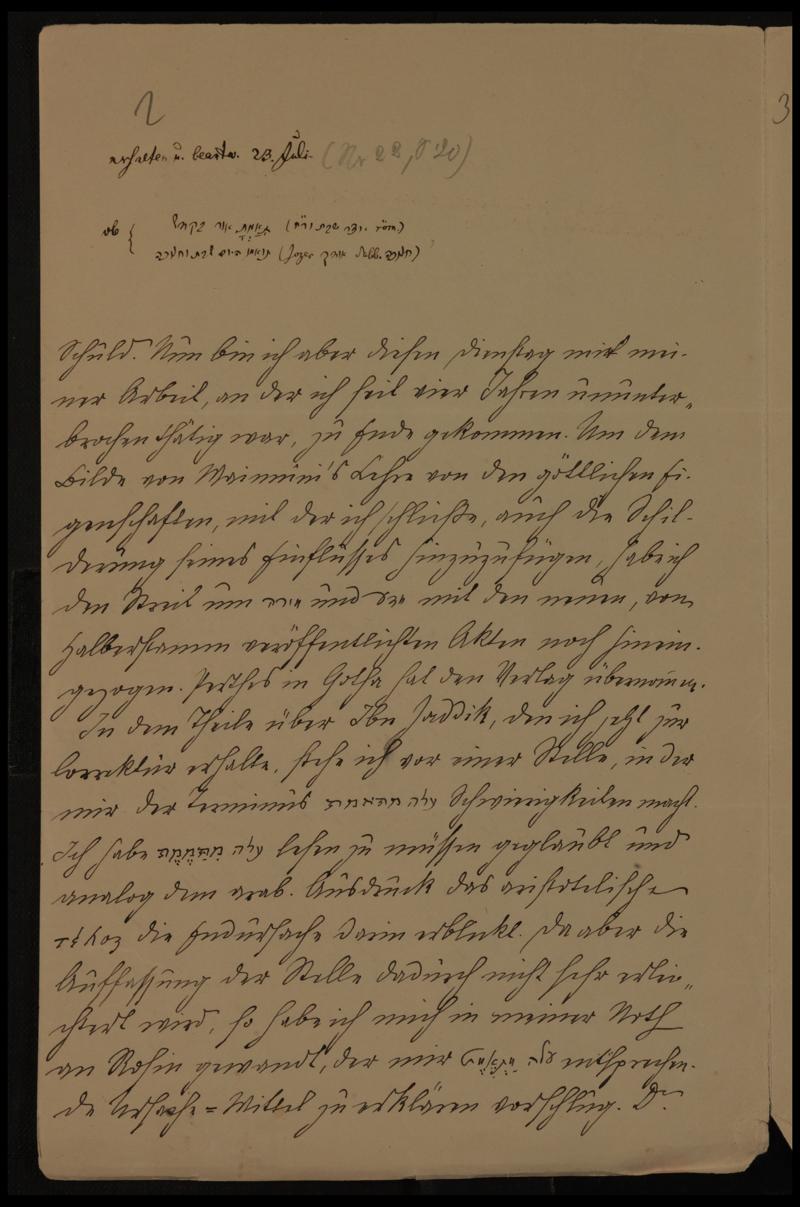 2
3
erhalten u. beantw. 23. Juli. (Nr 22, S 20)
ob
(Jozer
Schuld. Nun bin ich aber diesen Dienstag mit mei-
ner Arbeit, an der ich seit vier Jahren ununter-
brochen thätig war, zu Ende gekommen. Um dem
Bilde von Maimûni's Lehre von den göttlichen Ei-
genschaften, mit der ich schließe, auch die Schil-
derung seines Einflusses hinzuzufügen, habe ich
den Streit um מורה und מדע mit den neuen, von
Halberstamm veröffentlichten Akten noch hinein-
gezogen. Perthes in Gotha hat den Verlag übernommen.
In dem Theile über Ibn Zaddik, den ich jetzt zur
Correktur erhalte, stehe ich vor einer Stelle, in der
mir der Terminus עלה מתאמת Schwierigkeiten macht.
Ich habe עלה lesen zu müssen geglaubt und
analog dem arab. Ausdruck das aristotelische
τέλος die Endursache darin erblickt. Da aber die
Auffassung der Stelle dadurch nicht sehr erlei-
chtert wird, so habe ich mich in meiner Noth
an Rosin gewandt, der mir עלה entsprechen-
de Ursache = Mittel zu erklären vorschlug. Dr.